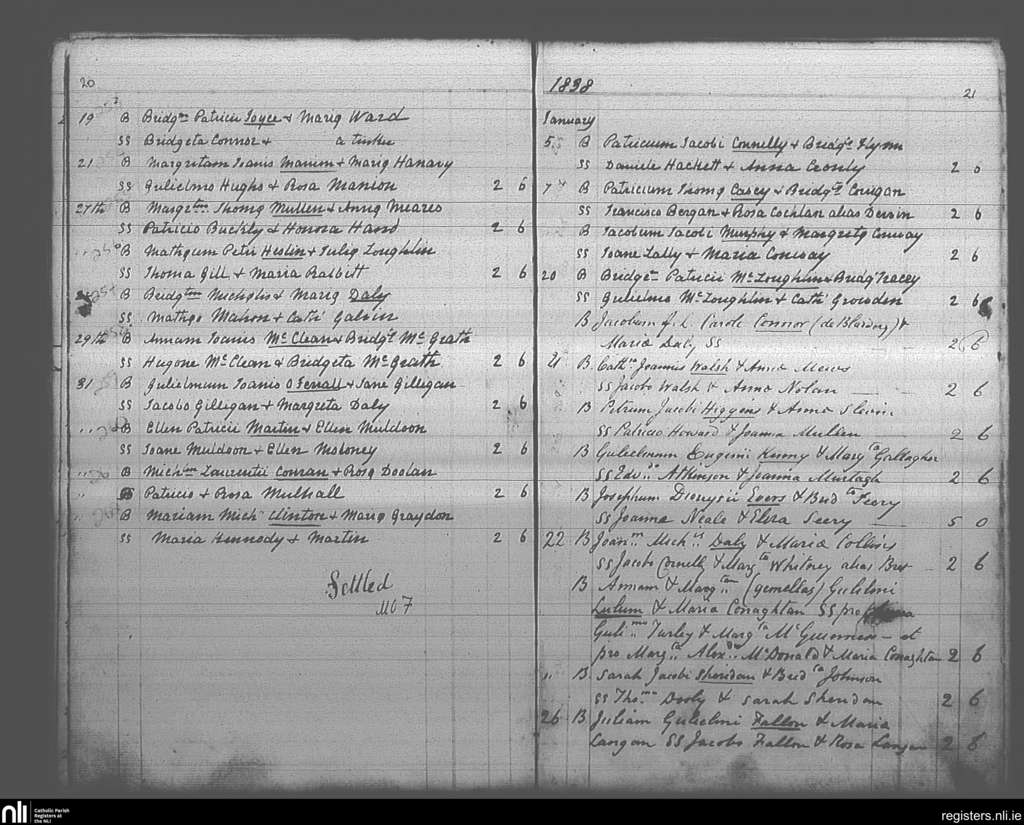 20
19 B Bridg.m Patricii Joyce & Mariæ Ward
SS Bridgeta Connor & a tinker
21 B Margretam Joanis Manion & Mariæ Hanavy
SS Gulielmo Hughs & Rosa Manion 2 6
27th B Margr.tam Thomæ Mullen & Annæ Meares
SS Patricio Buckly & Honora Hand 2 6
B Mathæum Petri Heslin & Juliæ Loughlin
SS Thoma Gill & Maria Balbitt 2 6
B Bridg.tam Micholis & Mariæ Daly
SS Mathæo Mahon & Cath. Galvin
29th B Annam Joanis McClean & Bridg.t McGrath
SS Hugone McClean & Bridgeta McGrath 2 6
31 B Gulielmum Joanis O Ferrall & Jane Gilligan
SS Jacobo Gilligan & Margreta Daly 2 6
B Ellen Patricii Martin & Ellen Muldoon
SS Joane Muldoon & Ellen Moloney 2 6
B Mich.m Laurentii Conran & Rosæ Doolan
Patricio & Rosa Mulhall 2 6
B Mariam Mich. Clinton & Mariæ Graydon
SS Maria Kennedy & Martin 2 6
Settled
1838
21
January
5 B Patricium Jacobi Connelly & Bridg.t Flynn
SS Daniele Hackett & Anna 2 0
7 B Patricium Thomæ Casey & Bridg.t Corrigan
SS Francisco Bergan & Rosa Cochlan alias Dervin 2 6
B Jacobum Jacobi Murphy & Margretæ Conway
SS Joane Lally & Maria Conway 2 6
20 B Bridge.m Patricii McLoughlin & Bridg Tracey
SS Gulielmo McLoughlin & Cath. 2 6
B Jacobum f. l. Caroli Connor &
Maria Daly SS 2 6
21 B Cath.m Joannis Walsh & Anna
SS Jacobo Walsh & Anna Nolan 2 6
B Petrum Jacobi Higgins & Anna Slevin
SS Patricio Howard & Joanna Mullen 2 6
B Gulielmum Eugenii Kenny & Mary Gallagher
SS Edv.o Atkinson & Joanna Murtagh 2 6
B Josephum Dionysii Evers & Brid.ta Feery
SS Joanna Neale & Eliza Seery 5 0
22 B Joan.m Mich.is Daly & Maria Collins
SS Jacobo Cornelly & Marg.ta Whitney alias 2 6
B Annam & Marg.tam (gemellas) Gulielmi
& Maria Conaghtan SS pro
Guli.mo Turley & Marg.ta et
pro Marg.ta Alex.dro McDonald & Maria Conaghtan 2 6
" B Sarah Jacobi Sheridan & Brid.ta Johnson
SS Tho.ma Dooly & Sarah Sheridan 2 6
26 B Juliam Gulielmi Fallon & Maria
Langan SS Jacobo Fallon & Rosa Langan 2 6
nli
Catholic Parish
Registers at
the NLI
registers.nli.ie